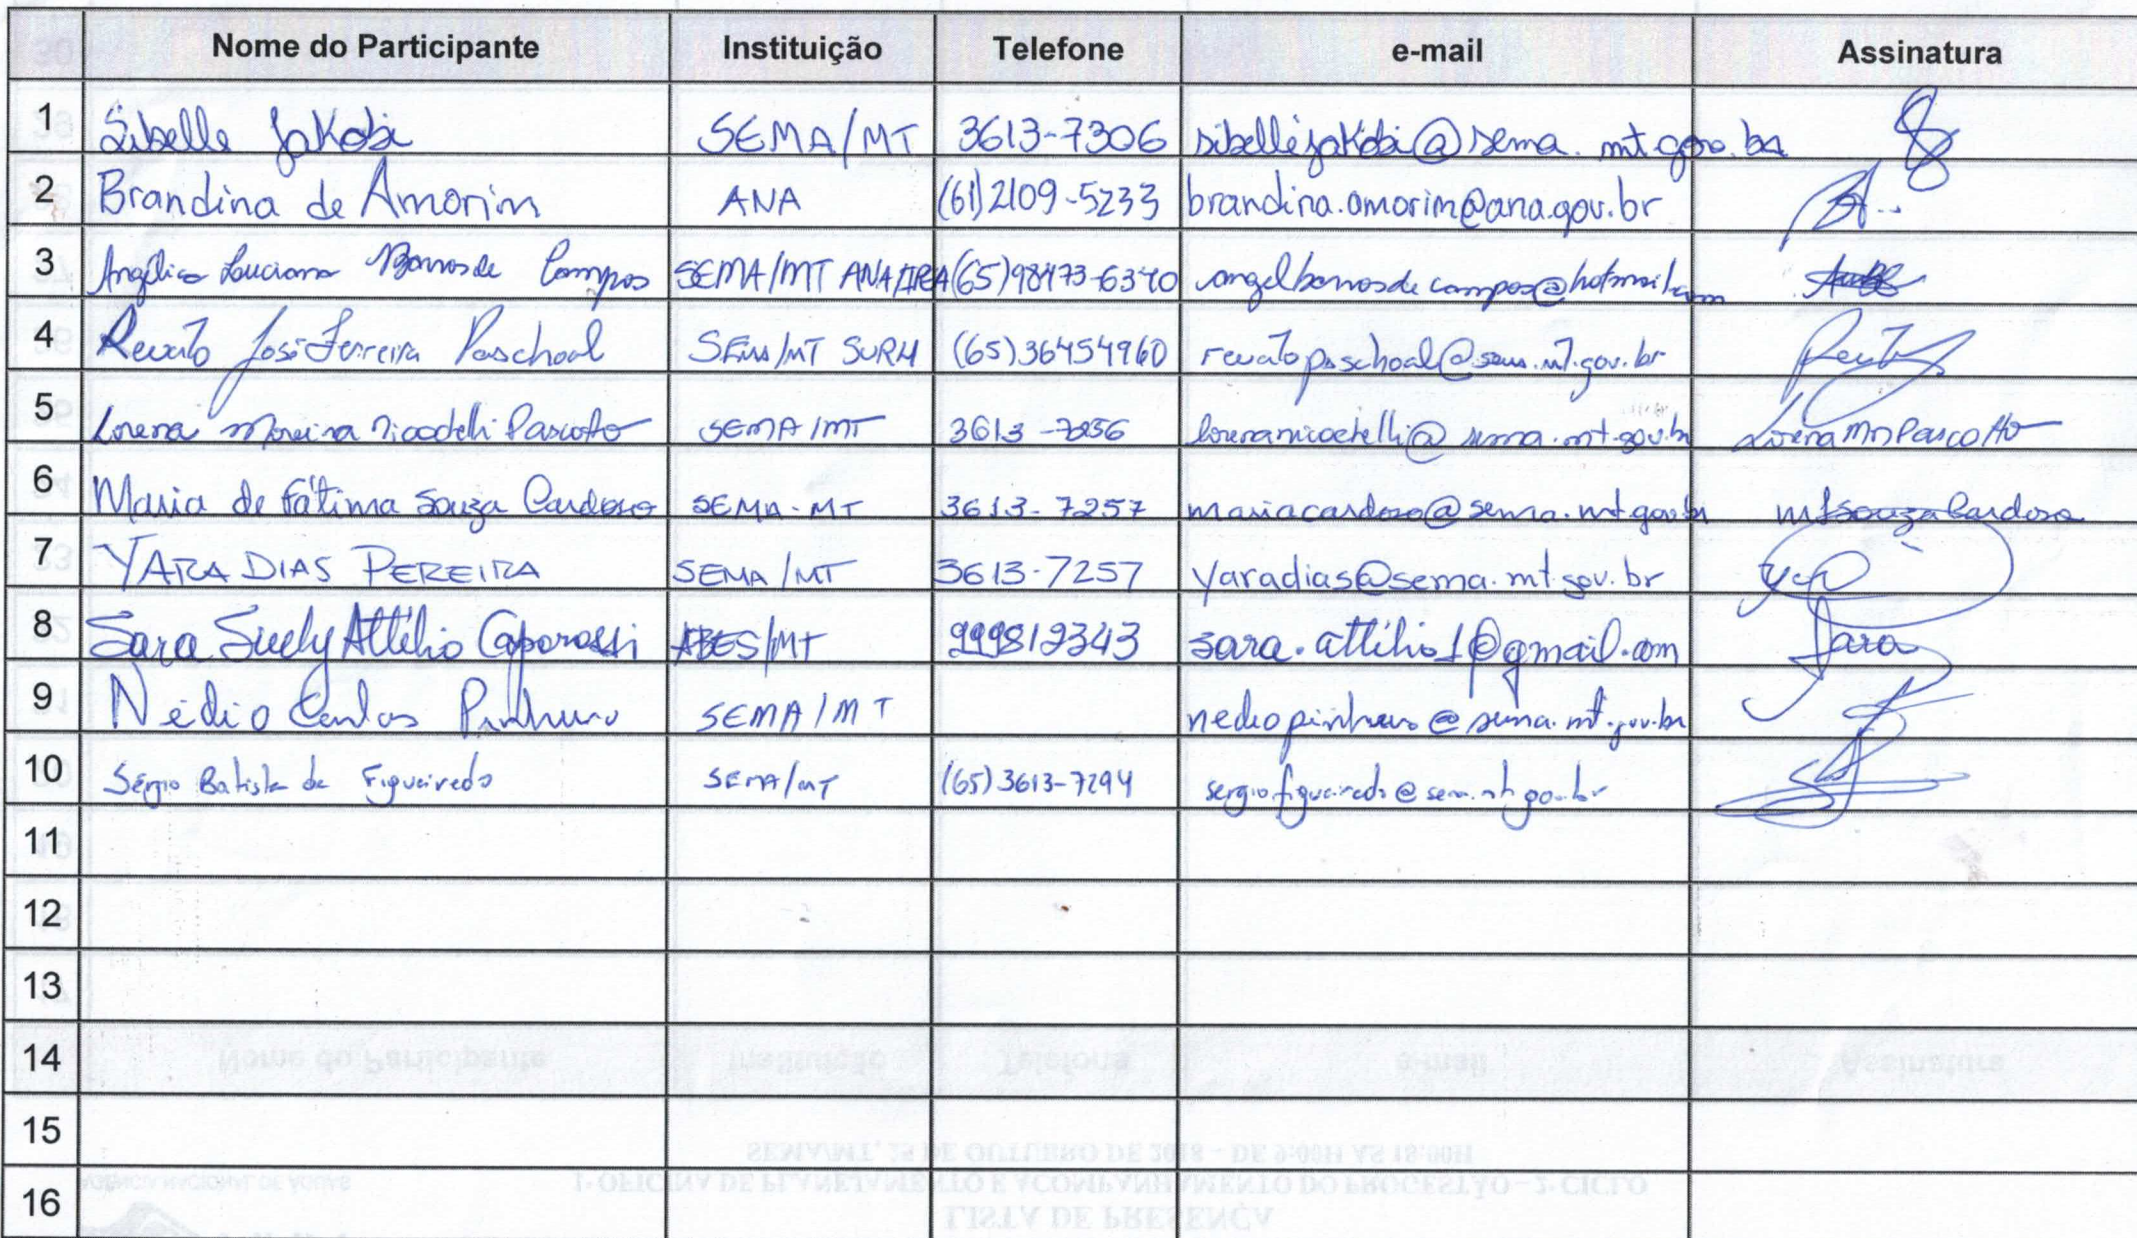 Nome do Participante Instituição Telefone e-mail Assinatura
1 Sibelle Jakobi SEMA/MT 3613-7306 sibellejakobi@sema.mt.gov.br
2 Brandina de Amorim ANA (61)2109-5233 brandina.amorim@ana.gov.br
3 Angélica Luciana Barros de Campos SEMA/MT ANA/IPEA (65)98473-6340 angelbarrosdecampos@hotmail.com
4 Renato José Ferreira Paschoal SEMA/MT SURH (65)36454960 renatopaschoal@sema.mt.gov.br
5 Lorena Moreira Nicodelli Pascotto SEMA/MT 3613-7256 Lorena MN Pascotto
6 Maria de Fátima Souza Cardoso SEMA-MT 3613-7257 mariacardoso@sema.mt.gov.br mfsouza Cardoso
7 YARA DIAS PEREIRA SEMA/MT 3613-7257 yaradias@sema.mt.gov.br
8 Sara Suely Attilio Caporossi ABES/MT 999812343 sara.attilio1@gmail.com Sara
9 Nédio Carlos Pinheiro SEMA/MT nediopinheiro@sema.mt.gov.br
10 Sérgio Batista de Figueiredo SEMA/MT (65)3613-7294 sergiofigueiredo@sema.mt.gov.br
11
12
13
14
15
16
LISTA DE PRESENÇA
1ª OFICINA DE PLANEJAMENTO E ACOMPANHAMENTO DO PROGESTÃO - 2º CICLO
SEMA/MT, 29 DE OUTUBRO DE 2018 - DE 9:00H ÀS 18:00H
AGÊNCIA NACIONAL DE ÁGUAS